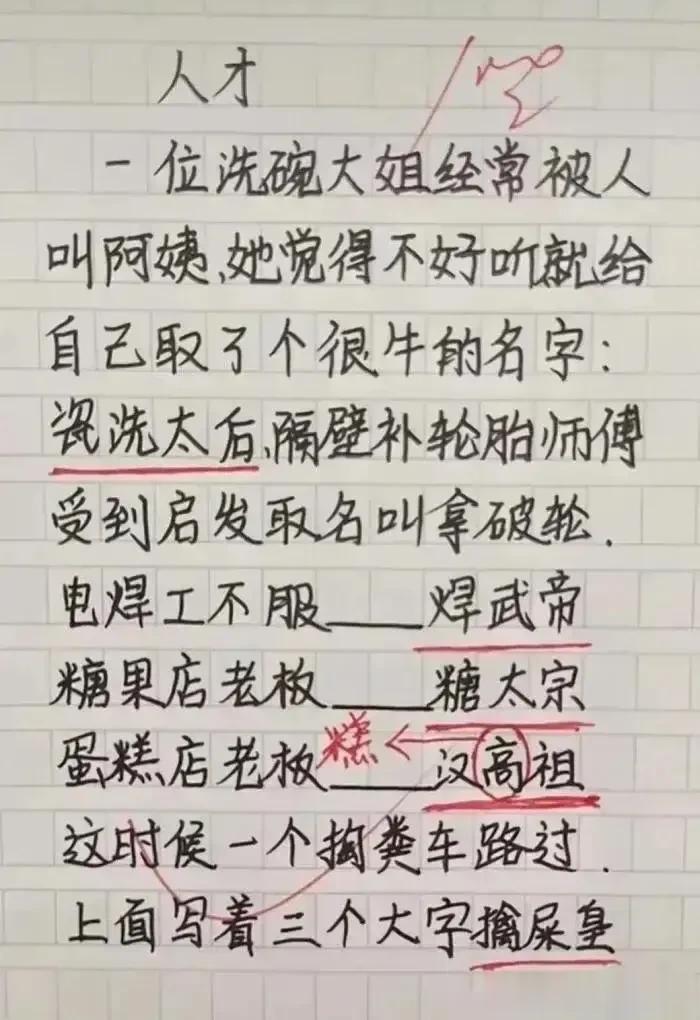 人才
一位洗碗大姐经常被人
叫阿姨、她觉得不好听就给
自己取了个很牛的名字：
瓷洗太后、隔壁补轮胎师傅
受到启发取名叫拿破轮．
电焊工不服____焊武帝
糖果店老板____糖太宗
糕
蛋糕店老板____汉高祖
这时候一个掏粪车路过．
上面写着三个大字擒屎皇